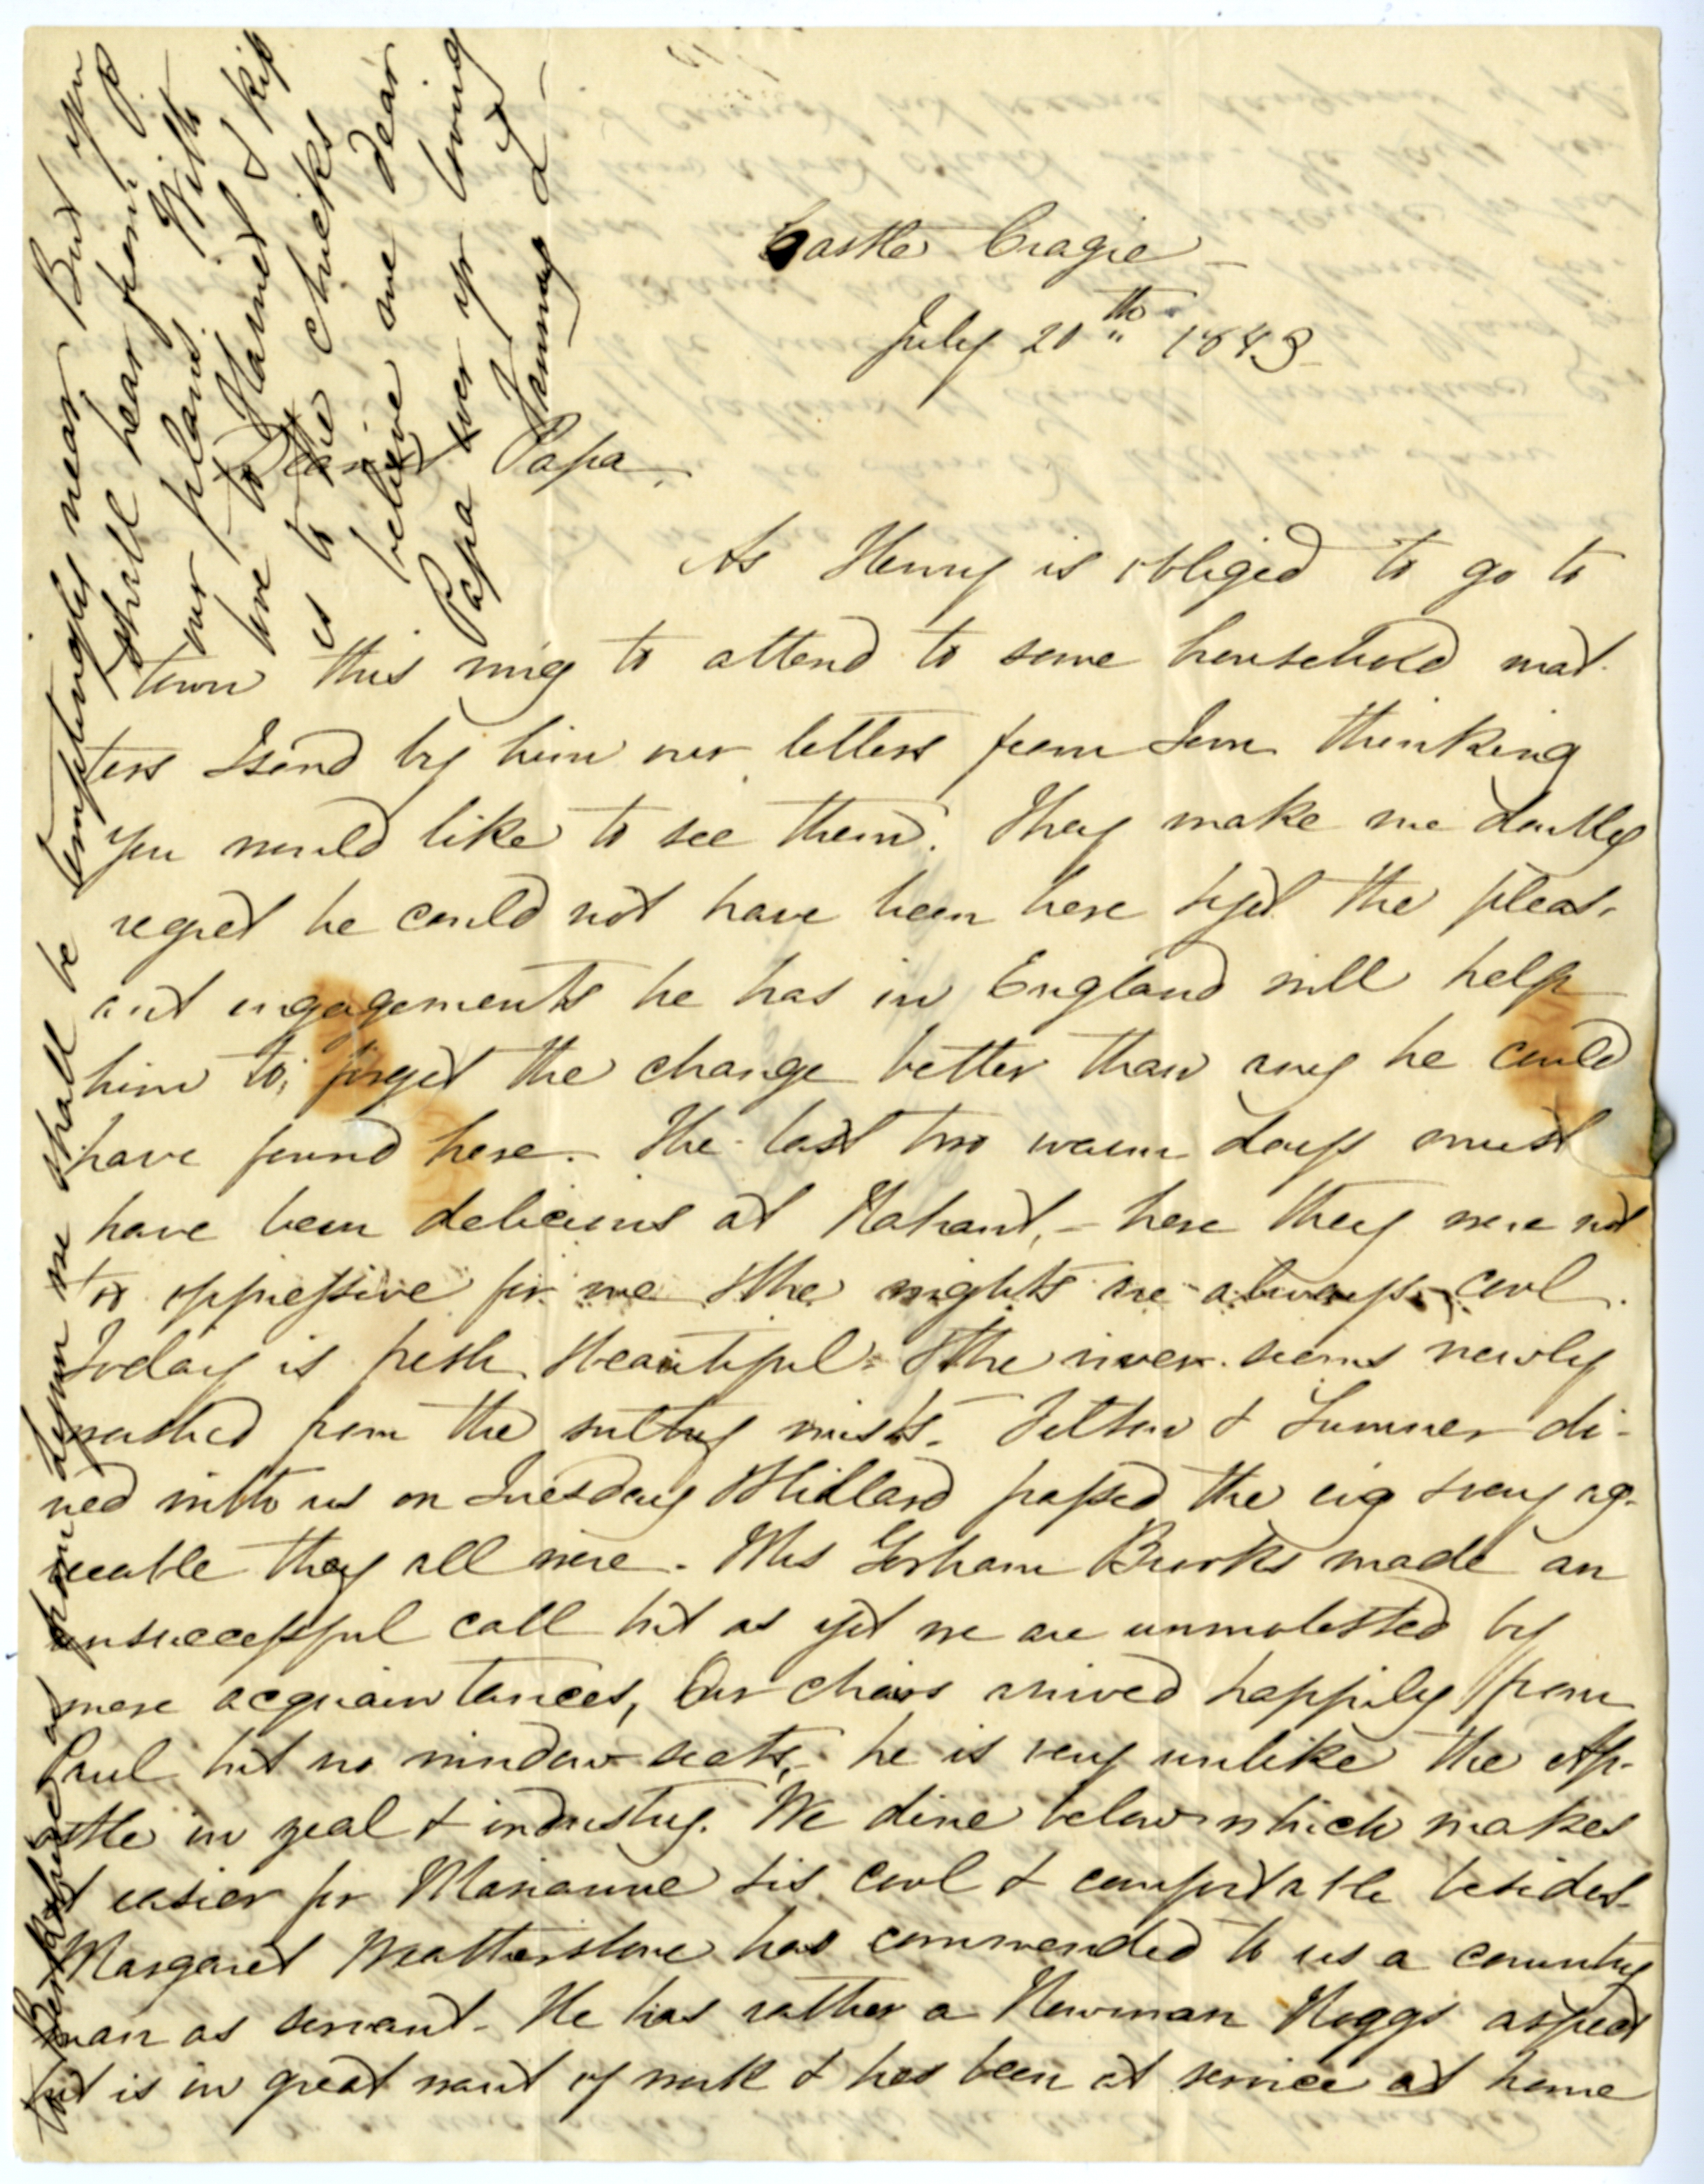 Castle Cragie –
July 20th 1843
Dearest Papa,
As Henry is obliged to go to
town this mng to attend to some household mat-
ters I send by him our letters from Tom thinking
you would like to see them. They make me doubly
regret he could not have been here tho' the pleas-
ant engagements he has in England will help
him to forget the change better than any he could
have found here. The last two warm days must
have been delicious at Nahant, – here they were not
too oppressive for me & the nights are always cool.
Today is fresh & beautiful & the river seems newly
washed from the sultry mists. Felton & Sumner di-
ned with us on Tuesday & Hillard passed the evg & very ag-
reeable they all were. Mrs Gorham Brooks made an
unsuccessful call but as yet we are unmolested by
mere acquaintances, Our chairs arrived happily from
Paul but no window seats, – he is very unlike the Ap-
ostle in zeal & industry. We dine below which makes
it easier for Marianne & is cool & comfortable besides.
Margaret has commended to us a country
man as servant. He has rather a Newman Noggs aspect
but is in great want of work & has been at service at home
But perhaps as from Lynn we shall be temptingly near. But you
shall hear from
our plans. With
love to Harriet & kisses
to the chicks
believe me dear
Papa ever yr loving
Fanny L –